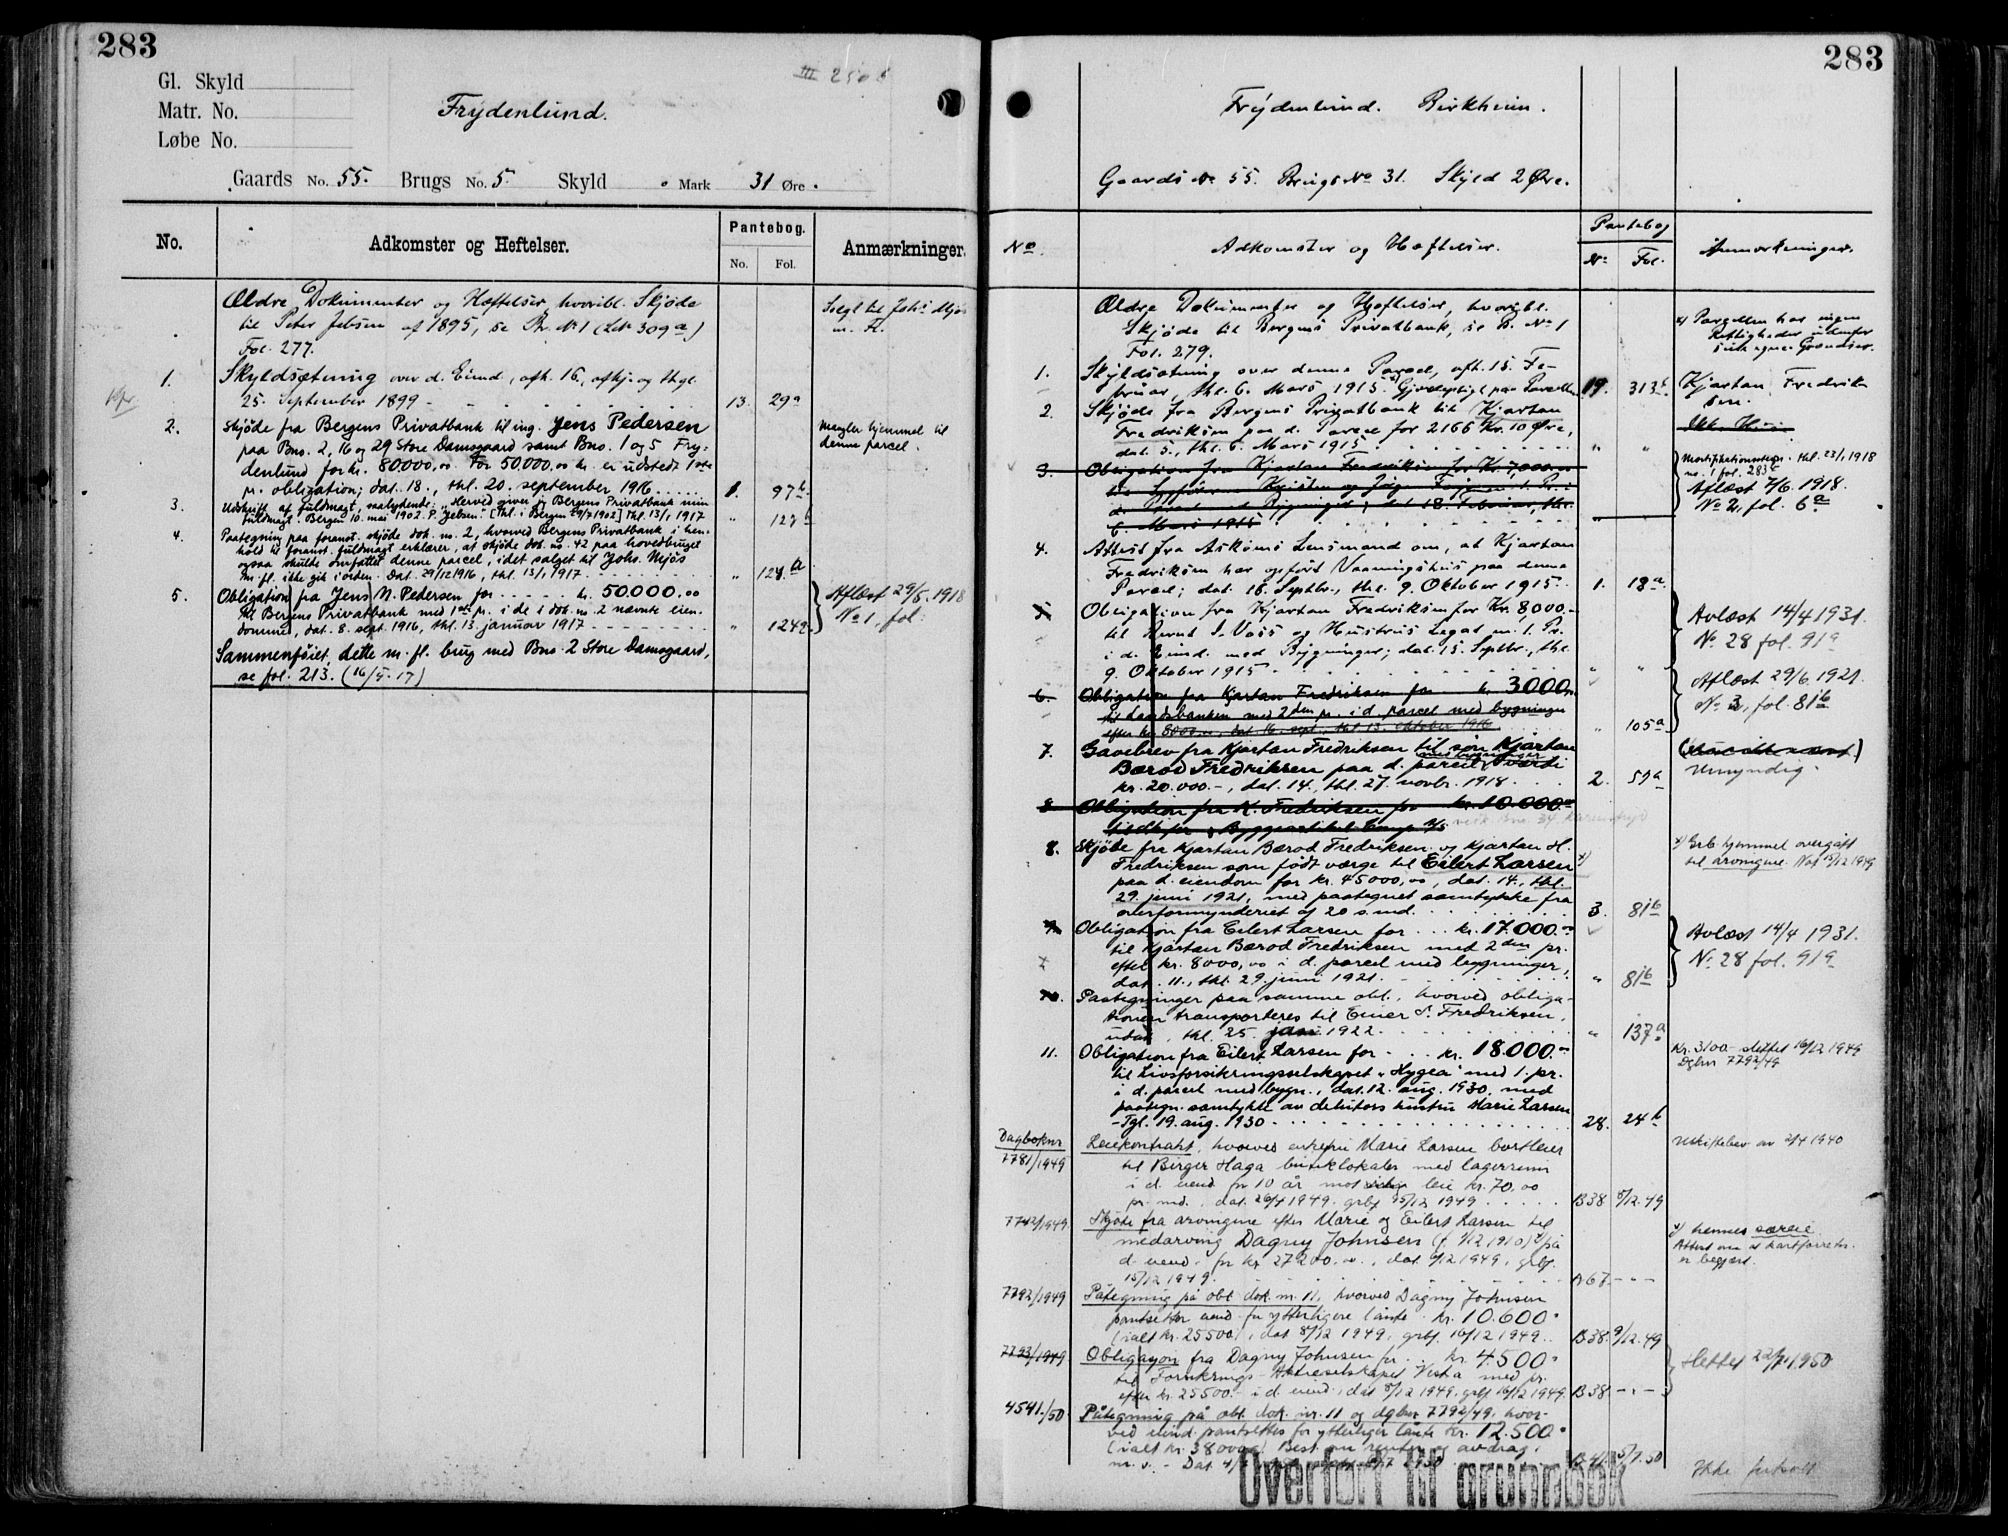 283
Gl. Skyld
Matr. No.
Løbe No.
Frydenlund.
Gaards No. 55. Brugs No. 5. Skyld Mark 31 Øre.
No.
Adkomster og Heftelser.
Pantebog.
No. Fol.
Anmærkninger.
Ældre Dokumenter og Hæftelser, hvoribl. Skjøde
til Peter Jebsen af 1895, se Rh. N: 1 (Lit. 309a)
Fol. 277.
Solgt til Johs Mjøs
m. Fl.
1. Skyldsætning over d. Eiend., afh. 16., afhj. og thgl.
25. September 1899 13. 29a
2. Skjøde fra Bergens Privatbank til ing. Jens Pedersen
paa Bns. 2, 16 og 29 Store Damsgaard samt Bns. 1 og 5 Fry-
denlund for kr. 80000,00 For 50.000,00 kr. er udstedt 1ste
pr. obligation; dat. 18., thl. 20. september 1916 1. 97b
Mangler hjemmel til
denne parcel.
3. Udskrift af fuldmagt, saalydende: "Herved giver jeg Bergens Privatbank min
fuldmagt. Bergen 10. mai 1902. P. Jebsen." [Thl. i Bergen 29/7 1902] Thl. 13/1 1917 " 127b
4. Paategning paa foranst. skjøde dok. no. 2, hvorved Bergens Privatbank i hen-
hold til foranst. fuldmagt erklærer, at skjøde dok. no. 42 paa hovedbruget
ogsaa skulde omfattet denne parcel, idet salget til Johs. Mjøs
m. fl. ikke gik i orden. Dat. 29/12 1916, thl. 13/1 1917 " 128a
5. Obligation fra Jens N. Pedersen for kr. 50.000.00
til Bergens Privatbank med 1ste pr. i de i dok. no. 2 nævnte eien-
domme, dat. 8. sept. 1916, thl. 13. januar 1917 " 124a
Aflæst 29/5. 1918
No 1, fol.
Sammenføiet dette m. fl. brug med Bns. 2 Store Damsgaard,
se fol. 213. (16/5-17)
283
Frydenlund. Birkheim.
Gaards No 55. Brugs No 31. Skyld 2 Øre.
No
Adkomster og Heftelser.
Pantebog
No Fol.
Anmerkninger.
Ældre Dokumenter og Heftelser, hvoribl.
Skjøde til Bergens Privatbank, se P. No 1
Fol. 279.
x) Parcellen har ingen
Rettigheder udenfor
sine egne Grændser.
1. Skyldsætning over denne Parcel, afh. 15. Fe-
bruar, thl. 6. Mars 1915. x) Gjerdepligt paa Parcellen 19. 313b
2. Skjøde fra Bergens Privatbank til Kjartan
Fredriksen paa d. Parcel for 2166 Kr. 10 Øre,
dat. 5., thl. 6. Mars 1915 " "
Kjartan Fredrik-
sen.
3. Obligation fra Kjartan Fredriksen for Kr. 7,000.00
d. Parcel med Bygninger; dat. 18. Februar, thl.
6. Mars 1915 " "
Mortifikationsdom thl. 23/1 1918
no. 1 fol. 283b
Aflæst 7/6. 1918.
No 2, fol. 6a
4. Attest fra Askøens Lensmand om, at Kjartan
Fredriksen har opført Vaaningshus paa denne
Parcel; dat. 16. Septbr., thl. 9. Oktober 1915 1. 18a
5. Obligation fra Kjartan Fredriksen for Kr. 8,000.-
til Bernt S. Voss og Hustrus Legat m. 1. Pr.
i d. Eiend. med Bygninger; dat. 15. Septbr., thl.
9. Oktober 1915 " "
Avlæst 14/4 1931.
No 28 fol. 91a
6. Obligation fra Kjartan Fredriksen for kr. 3000,00
til Laanebanken med 2den pr. i d. parcel med bygninger
efter kr. 8000,00, dat. 16. sept., thl. 13. oktober 1916 " 105a
Aflæst 29/6. 1921.
No 3, fol. 81b
7. Gavebrev fra Kjartan Fredriksen til søn Kjartan
Bærod Fredriksen paa d. parcel med bygninger, værdi
kr. 20.000.-, dat. 14., thl. 27. novbr. 1918 2. 59a
Umyndig.
8. Obligation fra K. Fredriksen for kr. 10.000.00
8. Skjøde fra Kjartan Bærod Fredriksen og Kjartan H.
Fredriksen som født værge til Eilert Larsen x)
paa d. eiendom for kr. 45000,00, dat. 14., thl.
29. juni 1921, med paategnet samtykke fra
overformynderiet af 20 s. md. 3. 81b
x) Grb. hjemmel overgått
til arvingene. No 15/12 1949
9. Obligation fra Eilert Larsen for kr. 17.000.-
til Kjartan Bærod Fredriksen med 2den pr.
efter kr. 8000,00 i d. parcel med bygninger,
dat. 11., thl. 29. juni 1921 " 81b
Avlæst 14/4 1931.
No 28 fol. 91a
10. Paategninger paa samme obl., hvorved obliga-
tionen transporteres til Einer S. Fredriksen,
udat., thl. 25. jan. 1922 " 137a
11. Obligation fra Eilert Larsen for kr. 18.000.-
til Livsforsikringsselskapet "Hygea" med 1. pr.
i d. parcel med bygn., dat. 12. aug. 1930, med
paategn. samtykke av debitors hustru Marie Larsen
-Tgl. 19. aug. 1930 28. 24b
Kr. 3100.- slettet 16/12 1949
Dgbnr 7792/49
Dagboknr
7781/1949 Leiekontrakt, hvorved enkefru Marie Larsen bortleier
til Birger Haga butiklokaler med lagerrum
i d. eiend. for 10 år mot leie kr. 70,00
pr. md., dat. 26/4 1949. grbf. 15/12 1949 B38 8/12.49
Uskiftebev. av 2/4 1940
7782/1949 Skjøte fra arvingene efter Marie og Eilert Larsen til
medarving Dagny Johnsen (f. 1/12 1910) x) på
d. eiend. for kr 27200.00, dat. 1/12 1949, grbf.
15/12 1949. B67 - " -
x) hennes særeie
Attest om at kartforretn.
er begjært.
7792/1949 Påtegning på obl. dok. nr. 11, hvorved Dagny Johnsen
pantsetter eiend. for ytterligere lånte kr. 10.600.-
(ialt kr. 25500), dat 8/12 1949, grbf. 16/12 1949 B38 9/12.49
7793/1949 Obligasjon fra Dagny Johnsen for kr. 4.500.-
til Forsikrings-Aktieselskapet Vesta med pr.
efter kr. 25500.- i d. eiend., dat 8/12 1949, grbf 16/12 1949. B38 - " -
Slettet 22/7. 1950
4541/50 Påtegning på obl. dok. nr. 11 og dgbnr 7792/49, hvor-
ved eiend. pantsettes for ytterliger lånte kr. 12.500.-
(ialt kr. 38000.) Best. om renter og avdrag
m. v. - Dat. 4/7 1950 B41 5/7.50
Overført til grunnbok